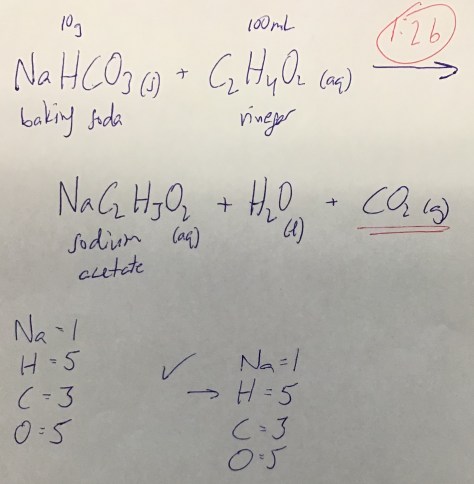 10g 100mL
1:26
NaHCO3 (s) + C2H4O2 (aq) →
baking soda vinegar
NaC2H3O2 + H2O + CO2 (g)
sodium (aq) (l)
acetate
Na = 1
H = 5
C = 3
O = 5
✓ → Na = 1
H = 5
C = 3
O = 5